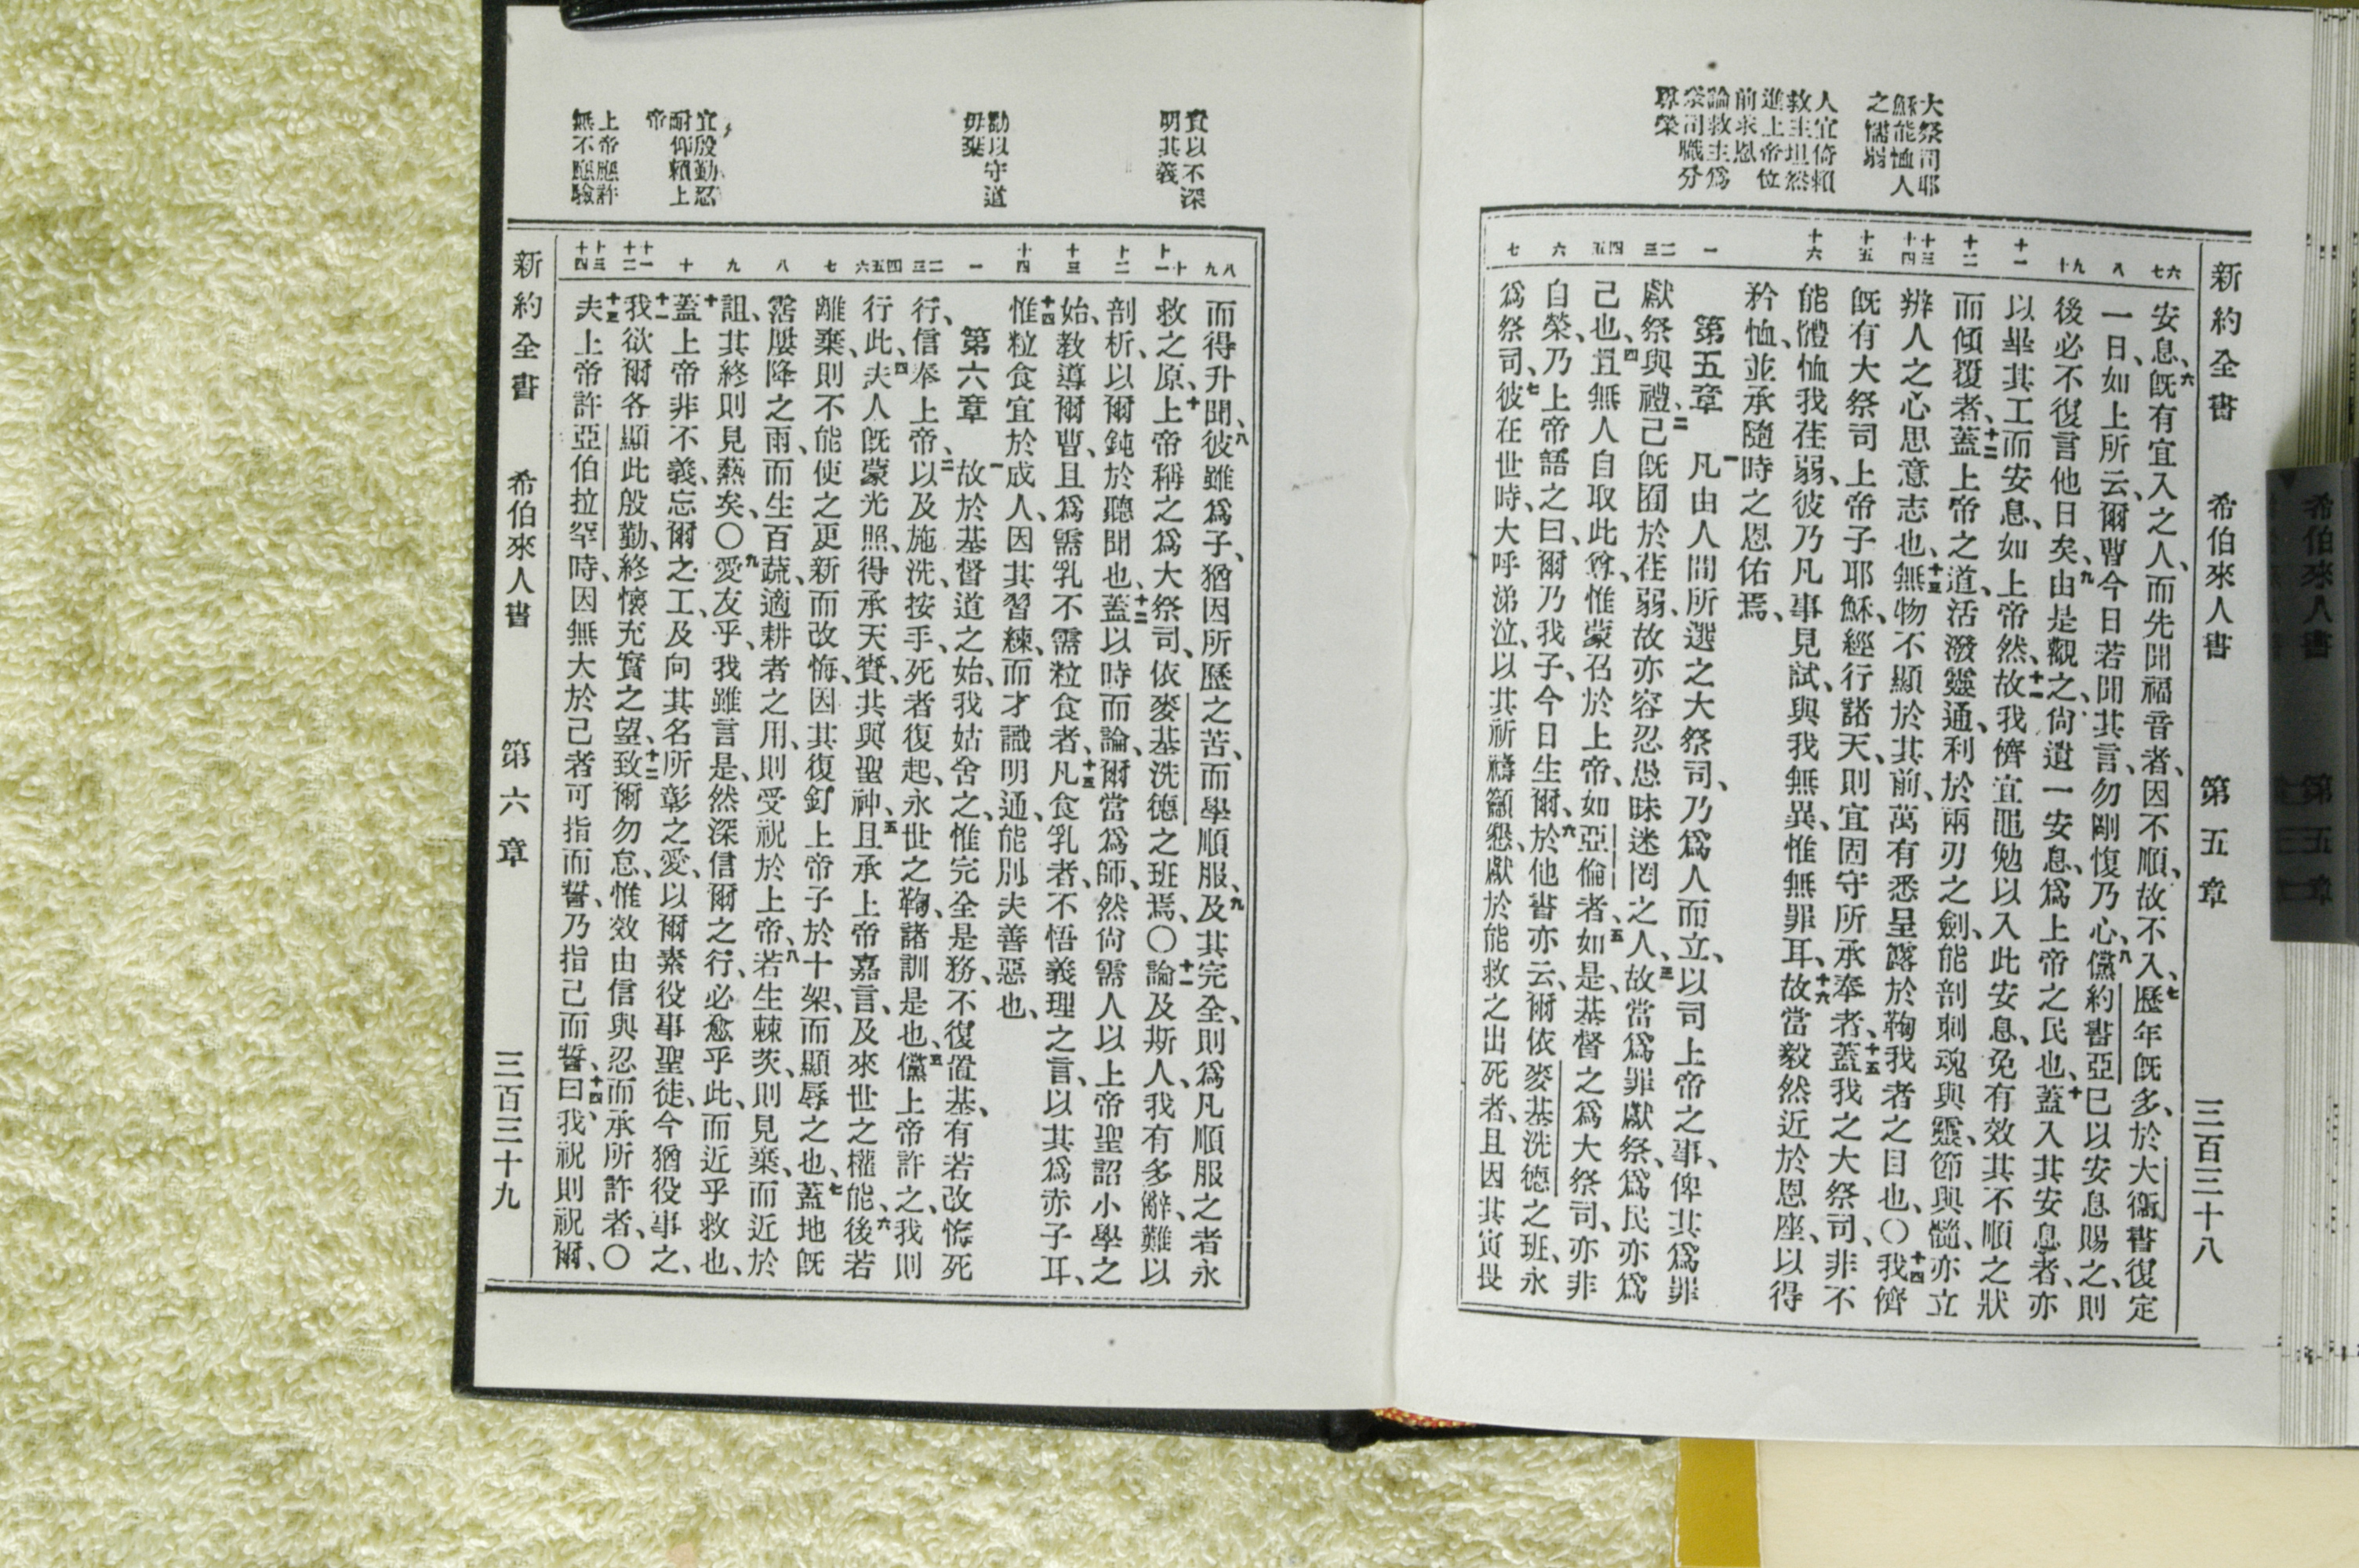 新約全書　希伯來人書　第五章　三百三十八
大祭司耶
穌能恤人
之懦弱
人宜倚賴
救主坦然
進上帝位
前求恩
論救主爲
祭司職分
尊榮
六七
八
九十
十一
十二
十三十四
十五
十六
一
二三
四五
六
七
安息、六既有宜入之人、而先聞福音者、因不順、故不入、七歷年既多、於大衞書復定
一日、如上所云、爾曹今日若聞其言、勿剛愎乃心、八儻約書亞已以安息賜之、則
後必不復言他日矣、九由是觀之、尙遺一安息、爲上帝之民也、十蓋入其安息者、亦
以畢其工而安息、如上帝然、十一故我儕宜黽勉以入此安息、免有效其不順之狀
而傾覆者、十二蓋上帝之道、活潑靈通、利於兩刃之劍、能剖刺魂與靈、節與髓、亦立
辨人之心思意志也、十三無物不顯於其前、萬有悉呈露於鞫我者之目也、〇十四我儕
既有大祭司上帝子耶穌、經行諸天、則宜固守所承奉者、十五蓋我之大祭司、非不
能體恤我荏弱、彼乃凡事見試、與我無異、惟無罪耳、十六故當毅然近於恩座、以得
矜恤、並承隨時之恩佑焉、
第五章　一凡由人間所選之大祭司、乃爲人而立、以司上帝之事、俾其爲罪
獻祭與禮、二己既囿於荏弱、故亦容忍愚昧迷罔之人、三故當爲罪獻祭、爲民亦爲
己也、四且無人自取此尊、惟蒙召於上帝、如亞倫者、五如是、基督之爲大祭司、亦非
自榮、乃上帝語之曰、爾乃我子、今日生爾、六於他書亦云、爾依麥基洗德之班、永
爲祭司、七彼在世時、大呼涕泣、以其祈禱籲懇、獻於能救之出死者、且因其寅畏
責以不深
明其義
勸以守道
毋棄
宜殷勤忍
耐仰賴上
帝
上帝應許
無不應驗
八九
十十一
十二
十三
十四
一
二三
四五六
七
八
九
十
十一十二
十三十四
而得升聞、八彼雖爲子、猶因所歷之苦、而學順服、九及其完全、則爲凡順服之者永
救之原、十上帝稱之爲大祭司、依麥基洗德之班焉、〇十一論及斯人、我有多辭、難以
剖析、以爾鈍於聽聞也、十二蓋以時而論、爾當爲師、然尙需人以上帝聖詔小學之
始、教導爾曹、且爲需乳不需粒食者、十三凡食乳者、不悟義理之言、以其爲赤子耳、
十四惟粒食宜於成人、因其習練、而才識明通、能別夫善惡也、
第六章　一故於基督道之始、我姑舍之、惟完全是務、不復置基、有若改悔死
行、信奉上帝、二以及施洗、按手、死者復起、永世之鞫、諸訓是也、三儻上帝許之、我則
行此、四夫人既蒙光照、得承天賚、共與聖神、五且承上帝嘉言、及來世之權能、六後若
離棄、則不能使之更新而改悔、因其復釘上帝子於十架、而顯辱之也、七蓋地既
霑屢降之雨、而生百蔬、適耕者之用、則受祝於上帝、八若生棘茨、則見棄、而近於
詛、其終則見爇矣、〇九愛友乎、我雖言是、然深信爾之行、必愈乎此、而近乎救也、
十蓋上帝非不義、忘爾之工、及向其名所彰之愛、以爾素役事聖徒、今猶役事之、
十一我欲爾各顯此殷勤、終懷充實之望、十二致爾勿怠、惟效由信與忍而承所許者、〇
十三夫上帝許亞伯拉罕時、因無大於己者可指而誓、乃指己而誓、曰、十四我祝則祝爾、
新約全書　希伯來人書　第六章　三百三十九